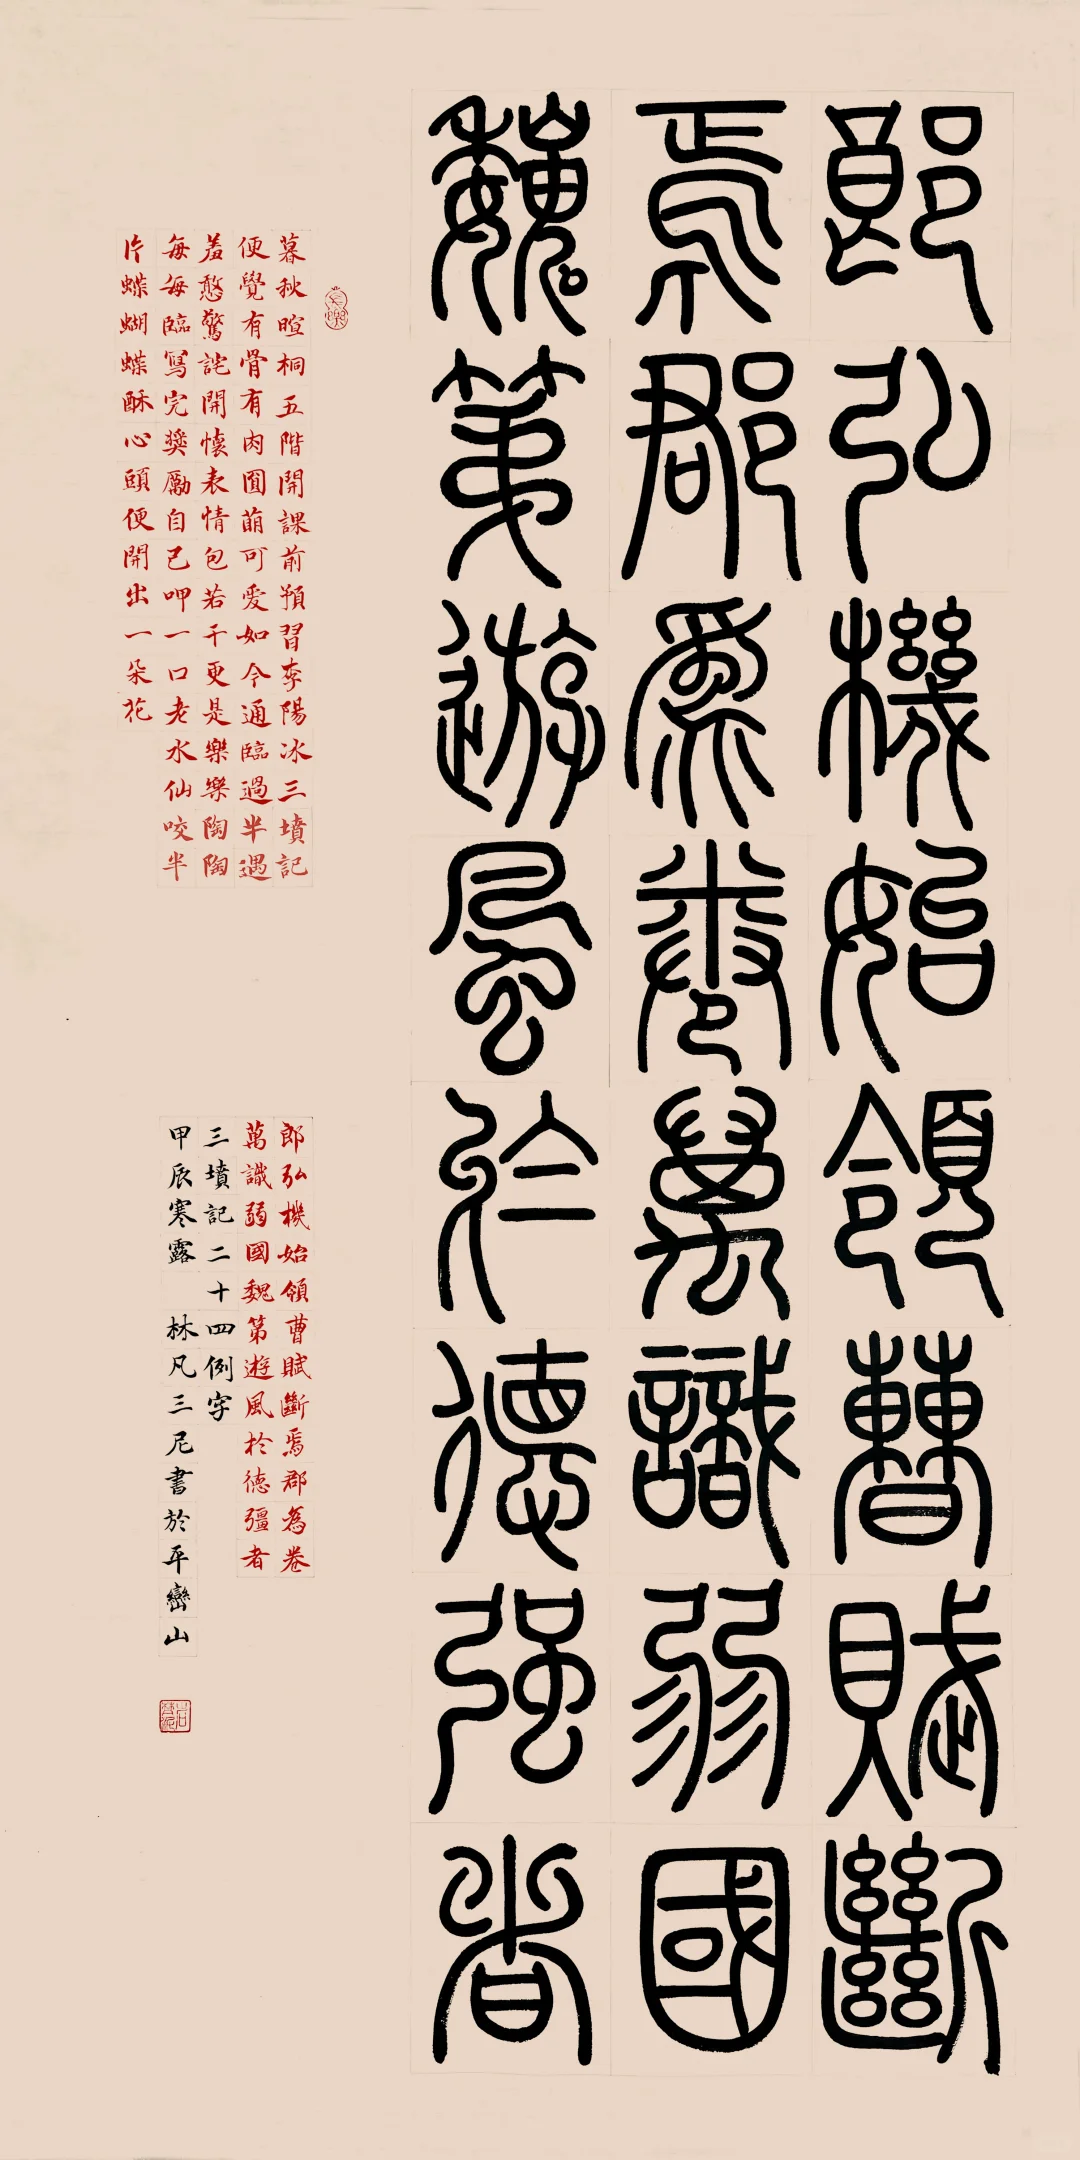 郎弘機始領曹賦斷
焉郡為卷萬識弱國
魏第遊風於德強者
暮秋暄桐五階開課前預習李陽冰三墳記
便覺有骨有肉圓萌可愛如今通臨過半遇
羞憨驚詫開懷表情包若干更是樂樂陶陶
每每臨寫完獎勵自己呷一口老水仙咬半
片蝶蝴蝶酥心頭便開出一朵花
郎弘機始領曹賦斷焉郡為卷
萬識弱國魏第遊風於德彊者
三墳記二十四例字
甲辰寒露 林凡三尼書於平巒山